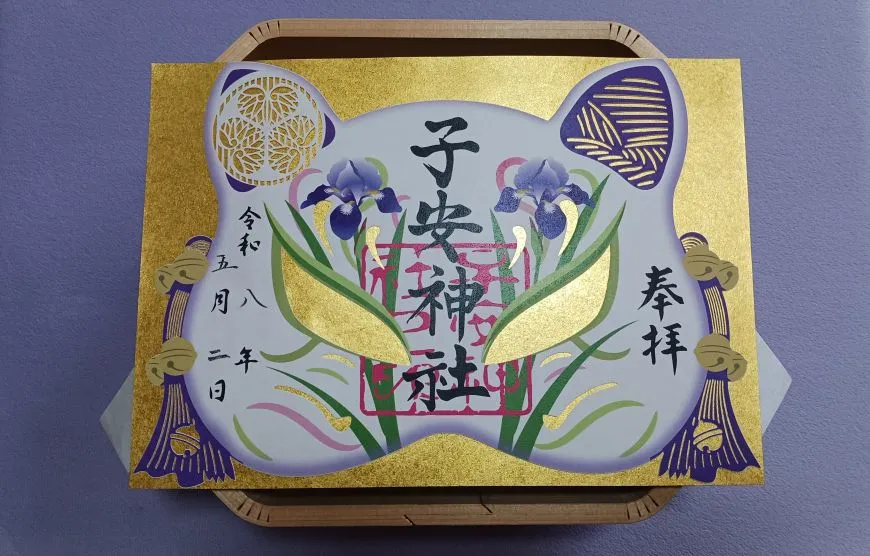 奉拝
子安神社
令和八年
五月二日